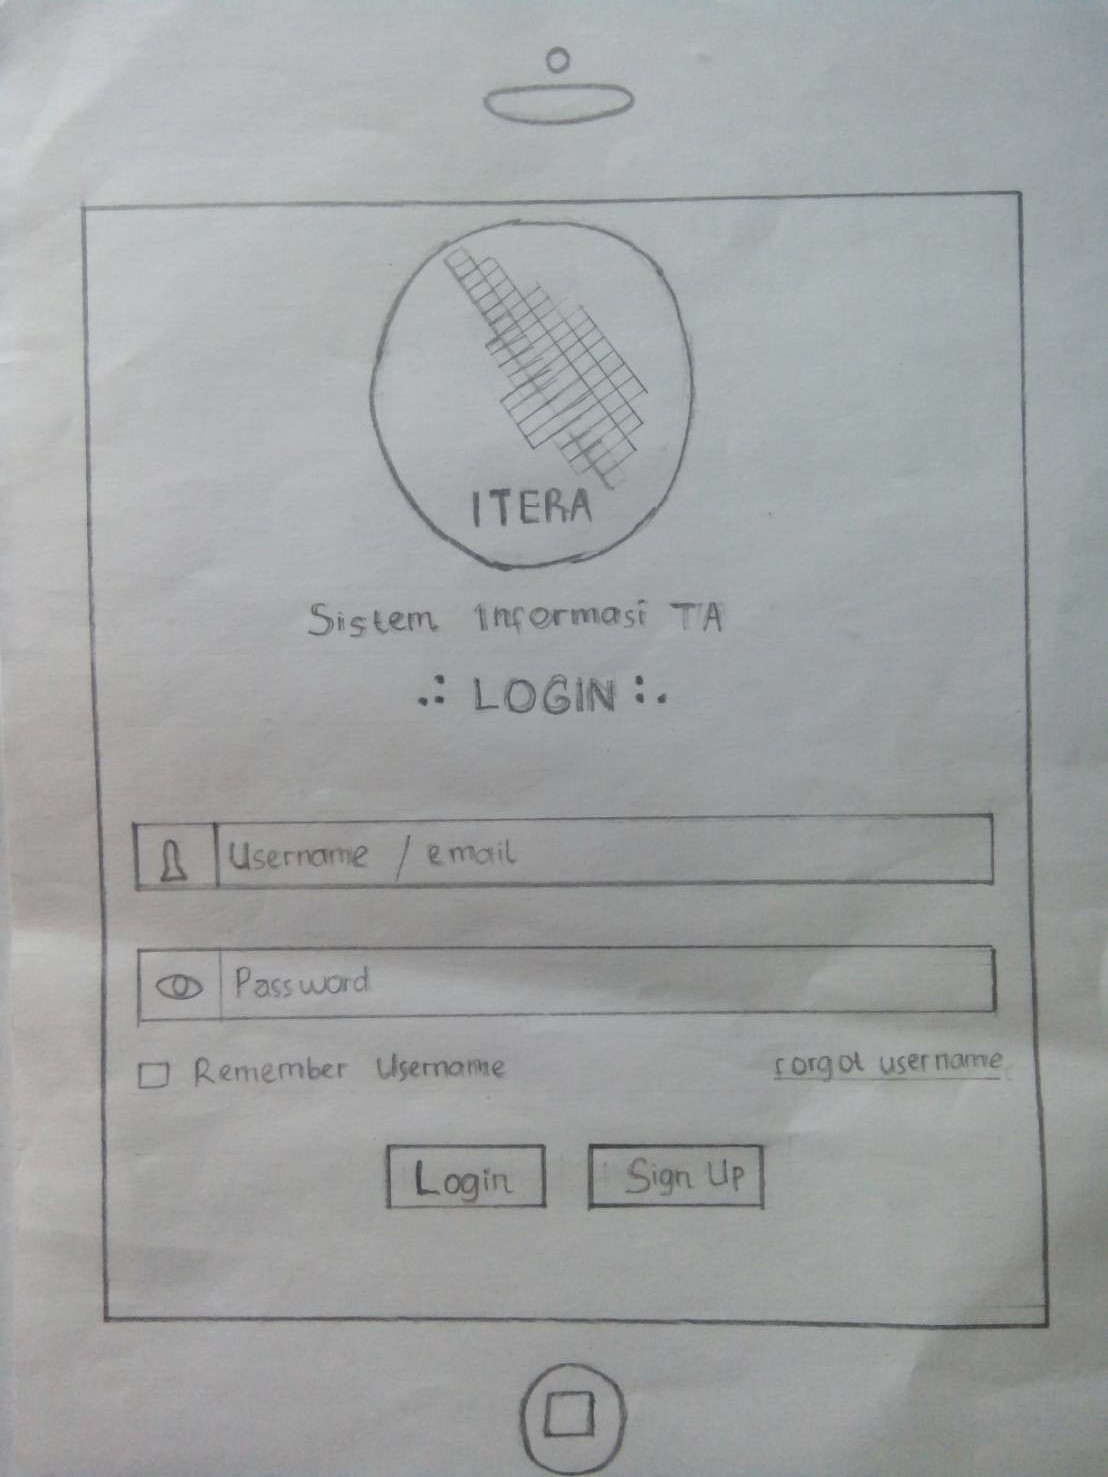 ITERA
Sistem Informasi TA
.: LOGIN :.
Username / email
Password
Remember Username
Forgot username
Login
Sign Up